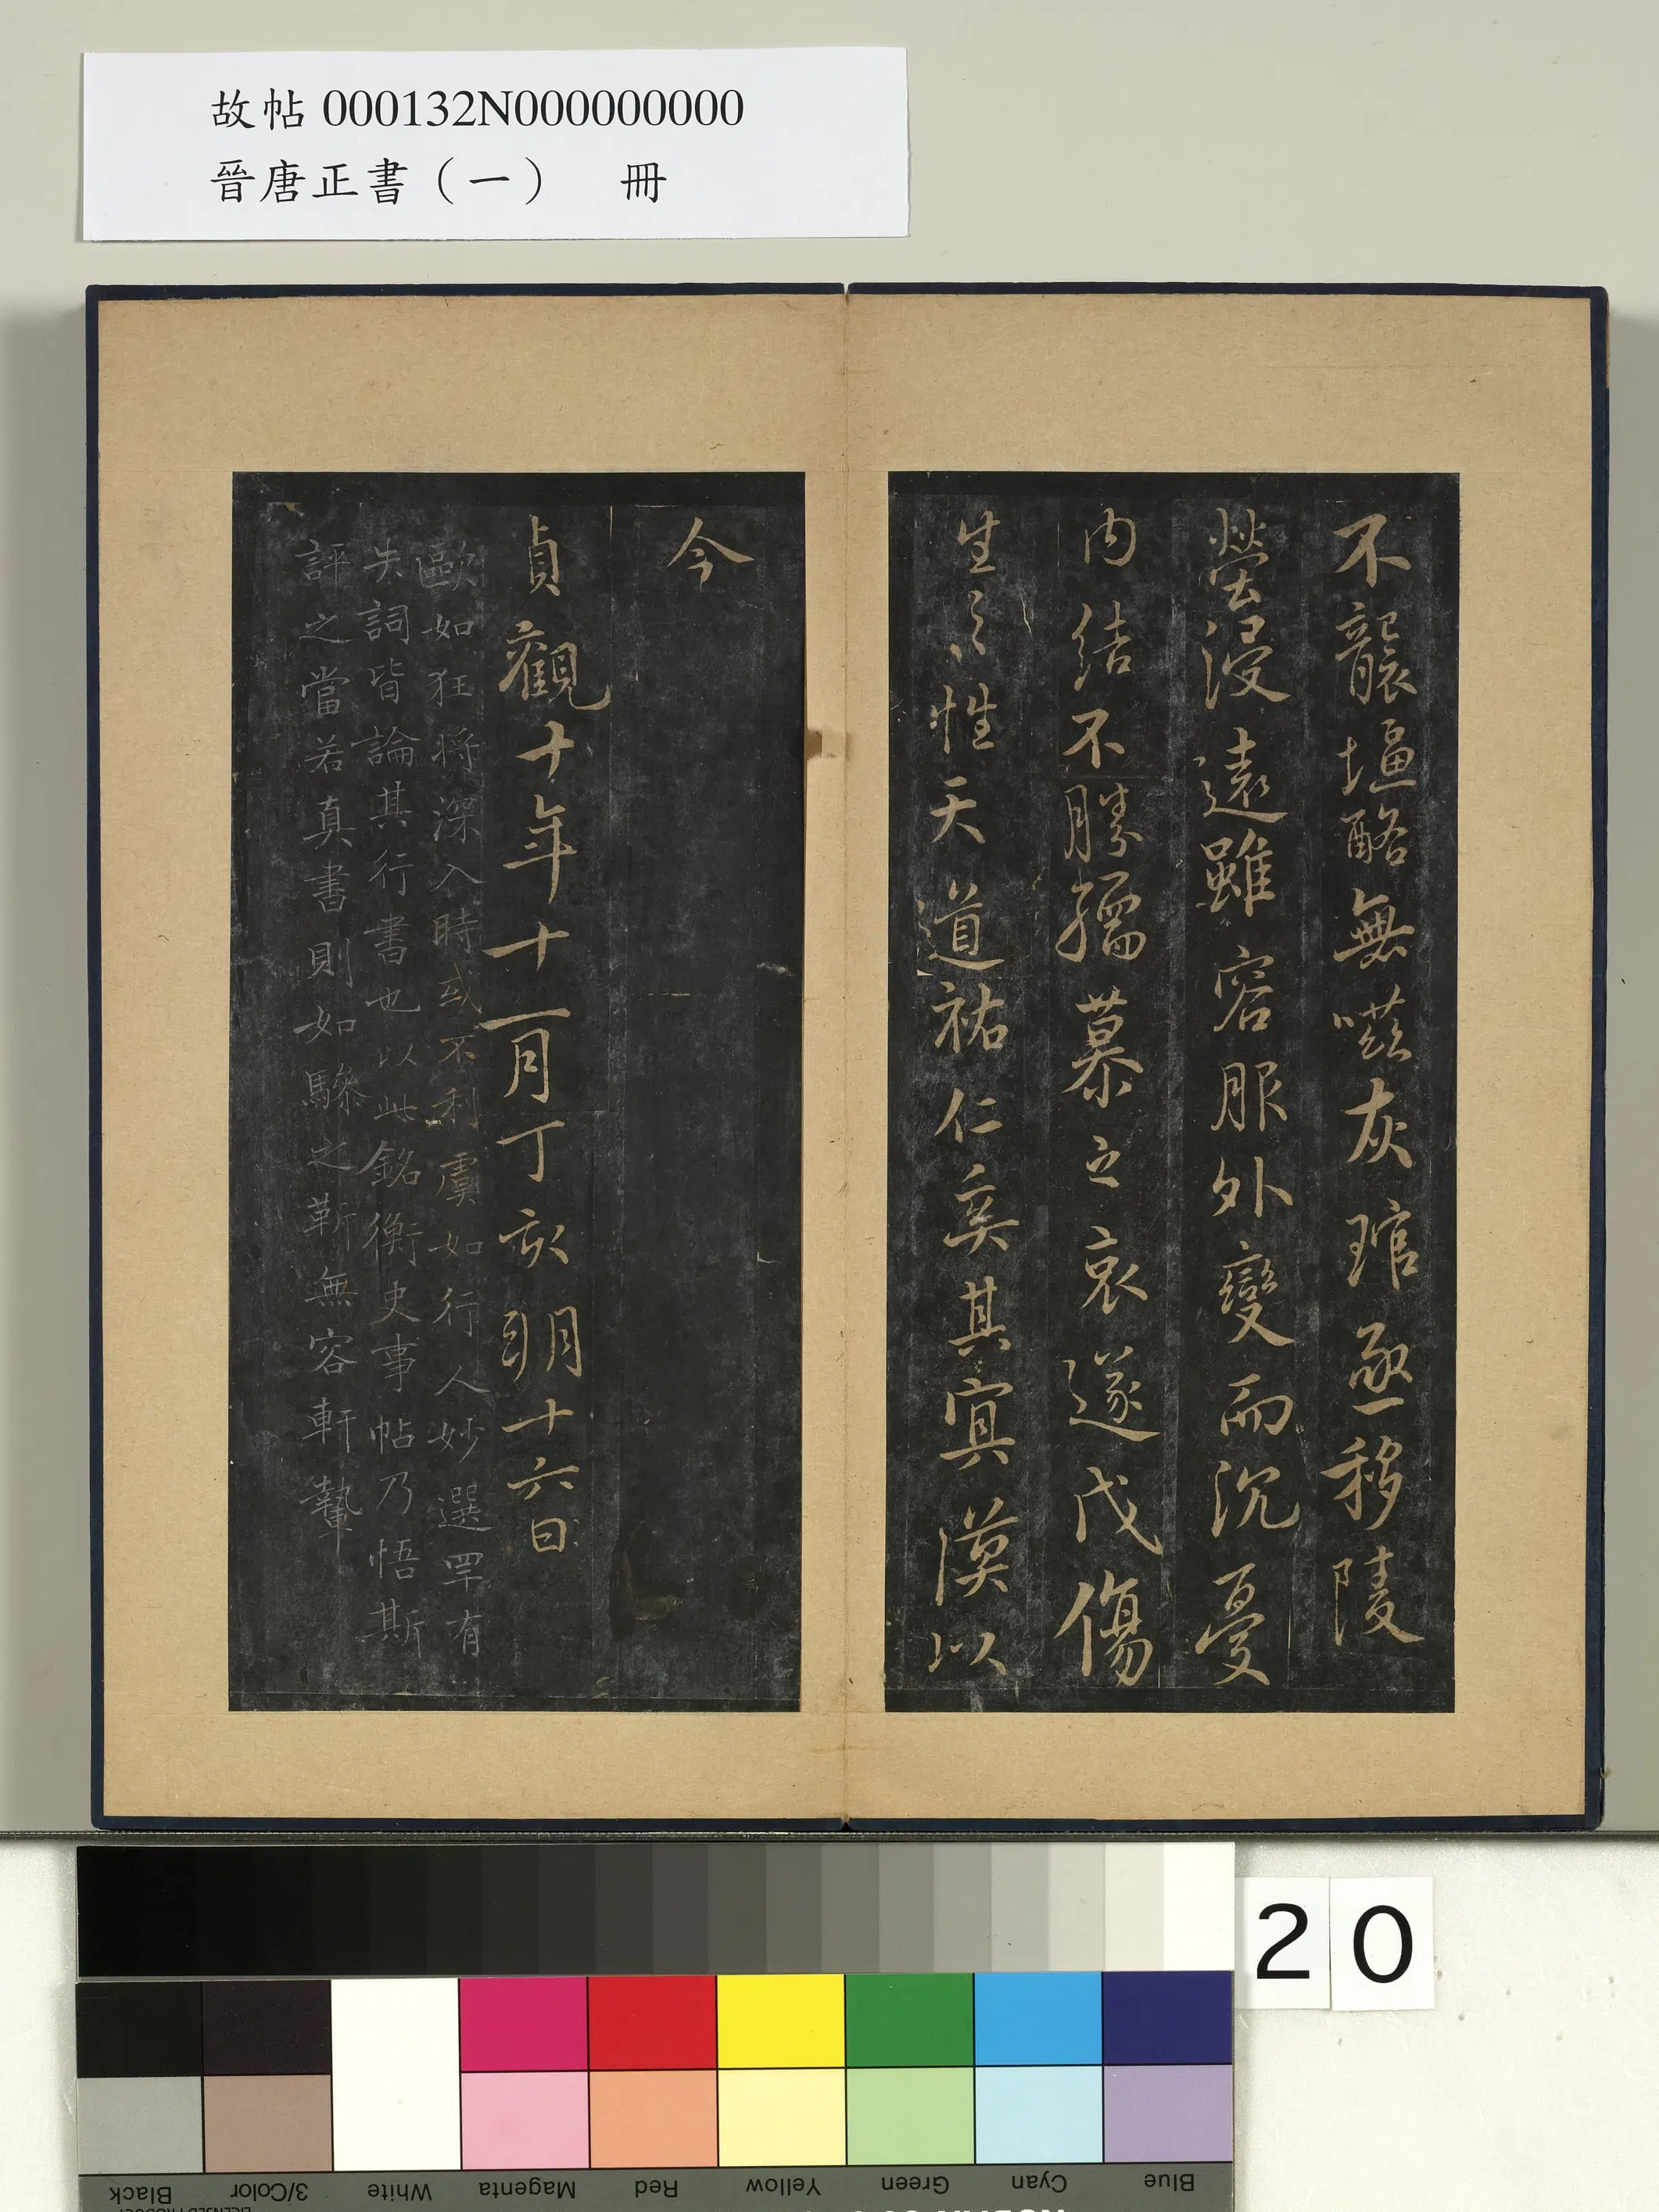 故帖 000132N000000000
晉唐正書（一） 冊
不襲堛酪無嗞灰琯亟移陵
塋浸遠雖容服外變而沉憂
内結不勝孺慕之哀遂戊傷
生之性天道祐仁奚其冥漠以
今
貞觀十年十一月丁亥朔十六日
歐如狂将深入時或不利虞如行人妙選罕有
失詞皆論其行書也以此銘衡史事帖乃悟斯
評之當若真書則如驂之靳無容軒輊
20
Black
3/Color
White
Magenta
Red
Yellow
Green
Cyan
Blue